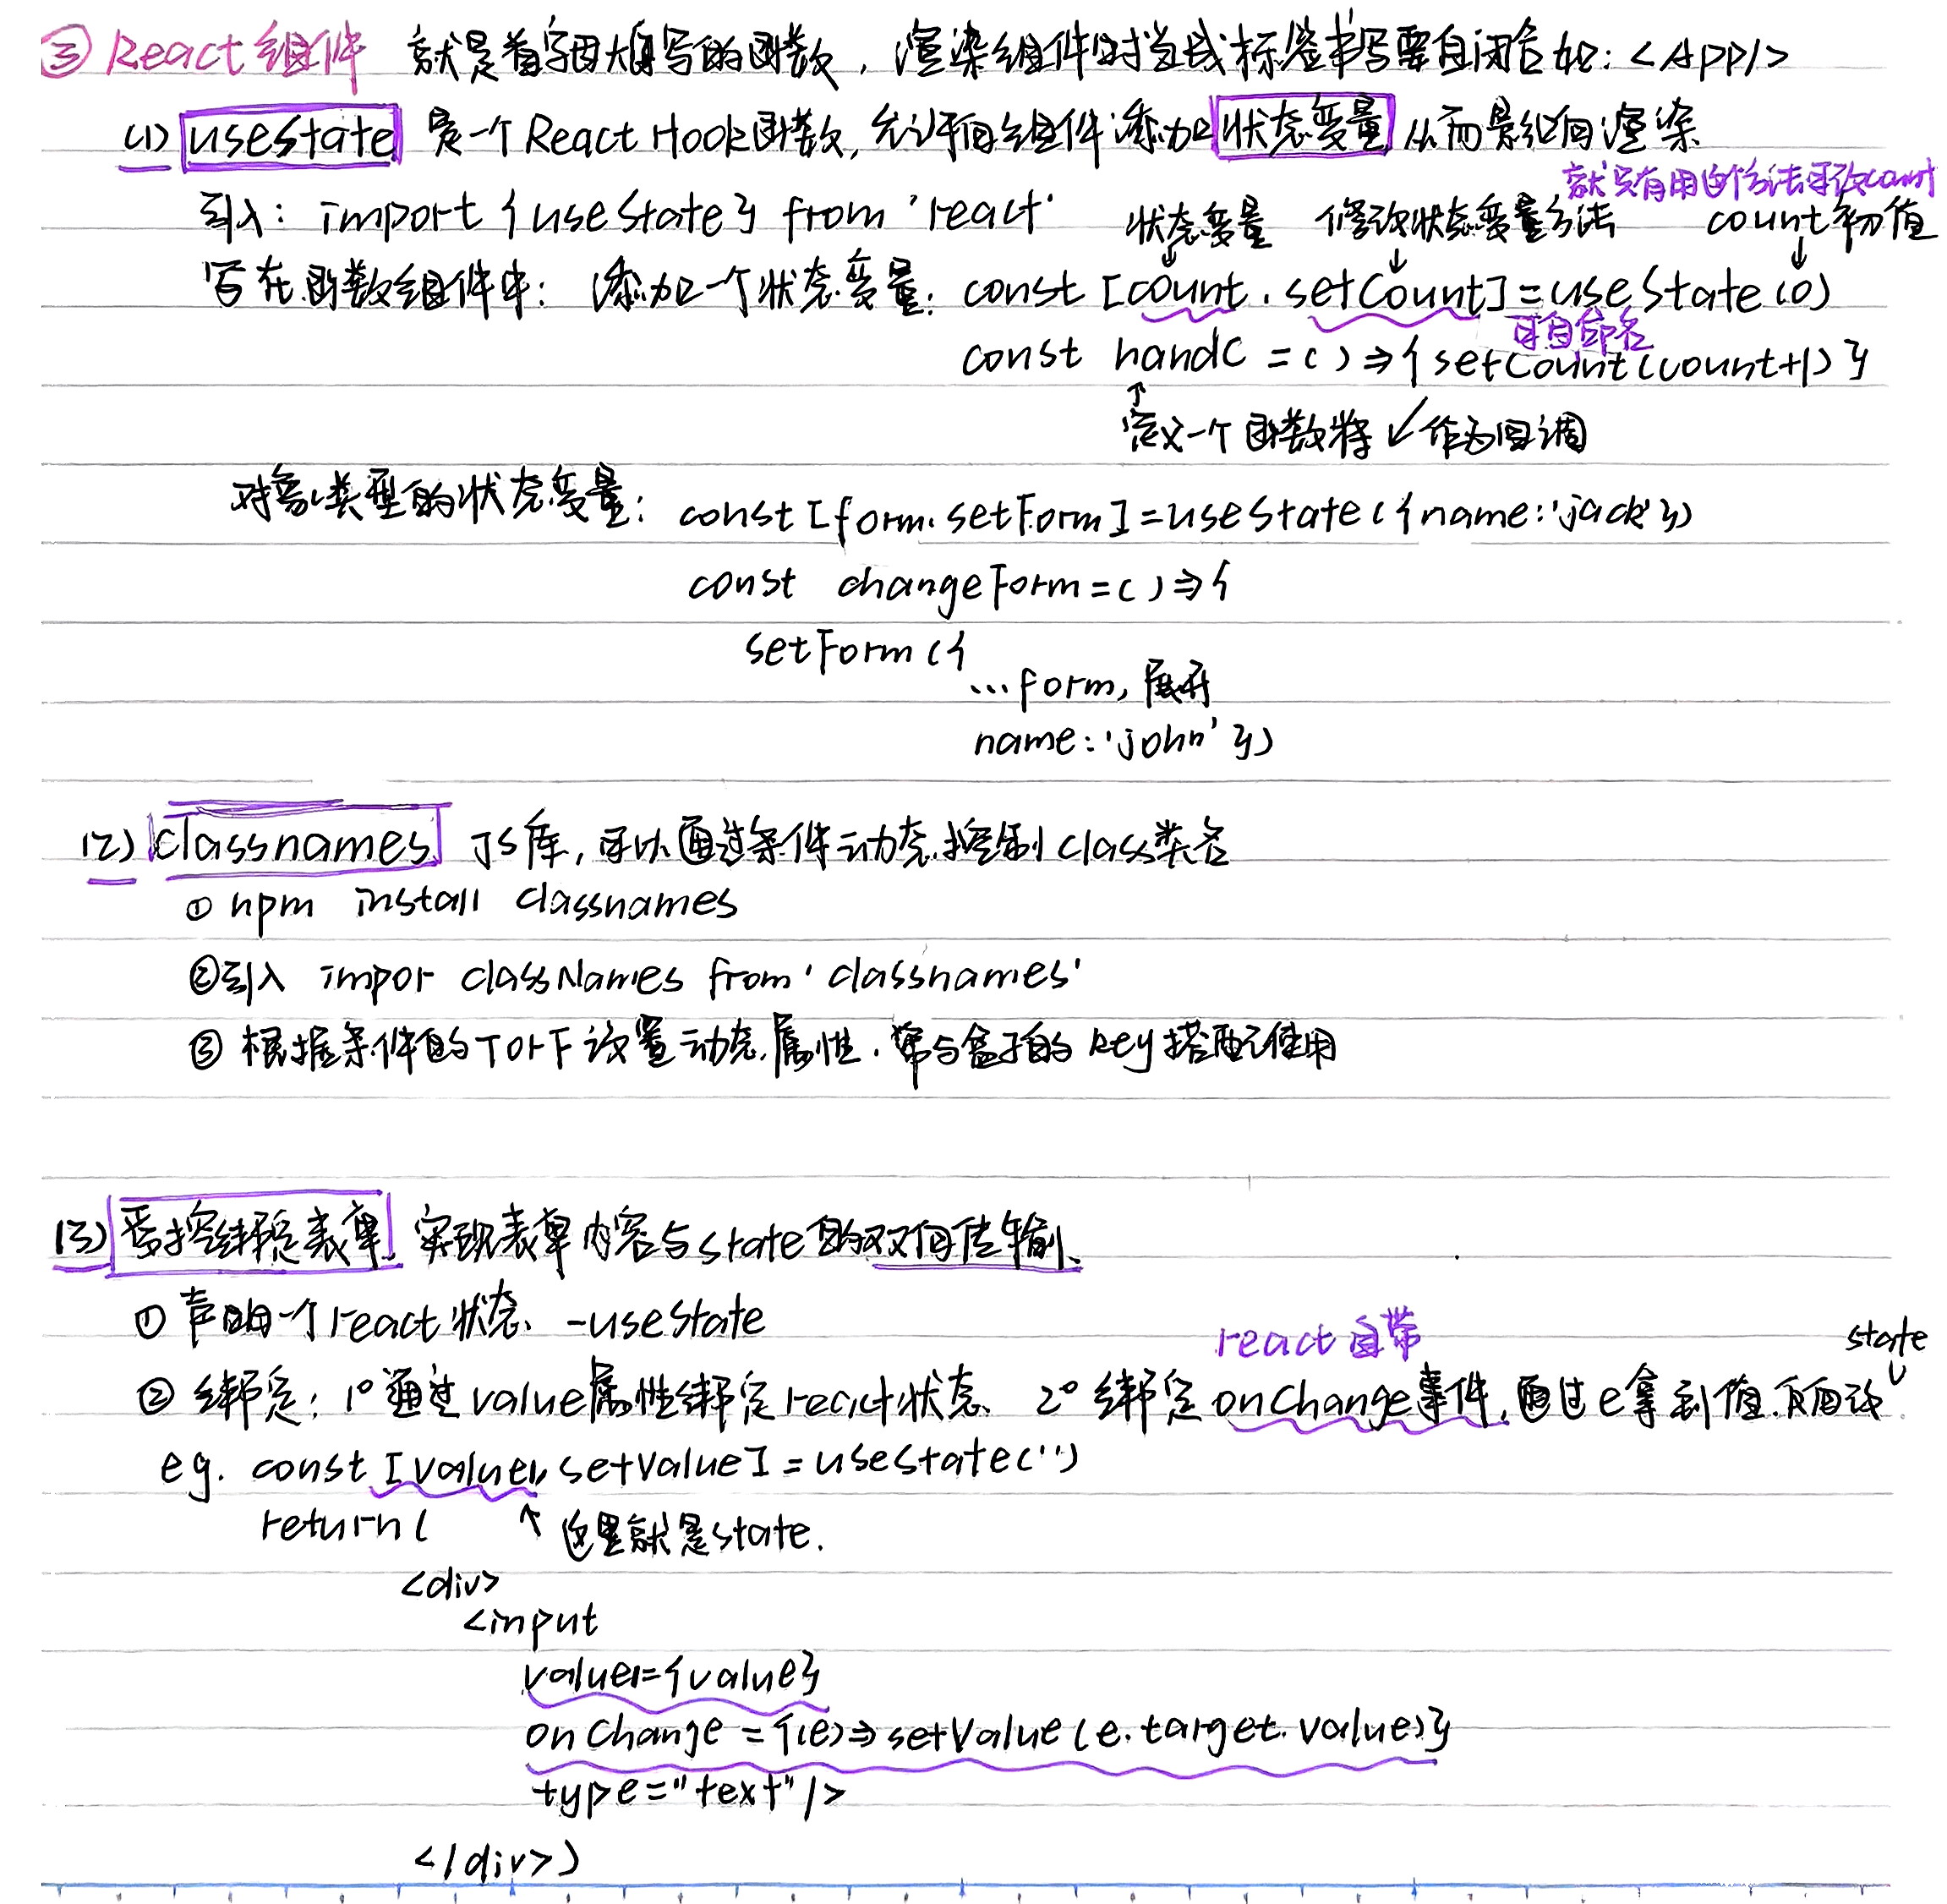 ③ React组件 就是首字母大写的函数，渲染组件时当成标签书写要自闭合如：<App/>
(1) useState 是一个React Hook函数，允许向组件添加状态变量 从而影响渲染
就只有用这个方法可改count
引入：import {useState} from 'react'
状态变量 修改状态变量方法 count初值
写在函数组件中：添加一个状态变量：const [count, setCount]=useState(0)
可自命名
const handC = ( ) => { setCount(count+1) }
↑
定义一个函数将 ↙ 作为回调
对象类型的状态变量：const [form, setForm]=useState({name:'jack'})
const changeForm=( )=>{
setForm({
...form, 展开
name:'john' })
(2) classnames JS库，可以通过条件动态控制class类名
① npm install classnames
②引入 impor classNames from 'classnames'
③ 根据条件的TorF设置动态属性，常与盒子的key搭配使用
(3) 受控绑定表单 实现表单内容与state的双向传输
① 声明一个react状态 -useState
react 自带 state
② 绑定：1° 通过value属性绑定react状态 2° 绑定onChange事件，通过e拿到值 反向改
eg. const [value, setValue]=useState('')
return ( ↑ 这里就是state.
<div>
<input
value={value}
onChange = {(e)=>setValue(e.target.value)}
type="text"/>
</div>)